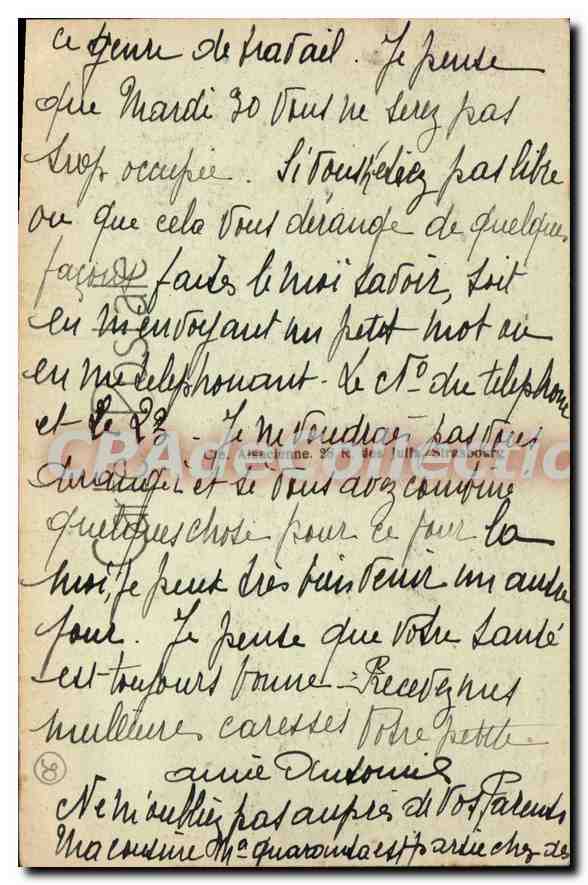 ce genre de travail. Je pense
que Mardi 30 vous ne serez pas
trop occupée. Si vous n'étiez pas libre
ou que cela vous dérange de quelques
façons faites le moi savoir, soit
en m'envoyant un petit mot ou
en me telephonant - Le No du telephone
et Le 23 - Je ne voudrais pas vous
Cie. Alsacienne, 28 R. des Juifs, Strasbourg
CPA de collection
deranger et si vous avez combiné
quelques chose pour ce jour la
moi, je peux très bien venir un autre
jour. Je pense que votre santé
est toujours bonne - Recevez mes
meilleures caresses votre petite
amie
Ne m'oubliez pas auprès de vos Parents
Ma cousine est partie chez des